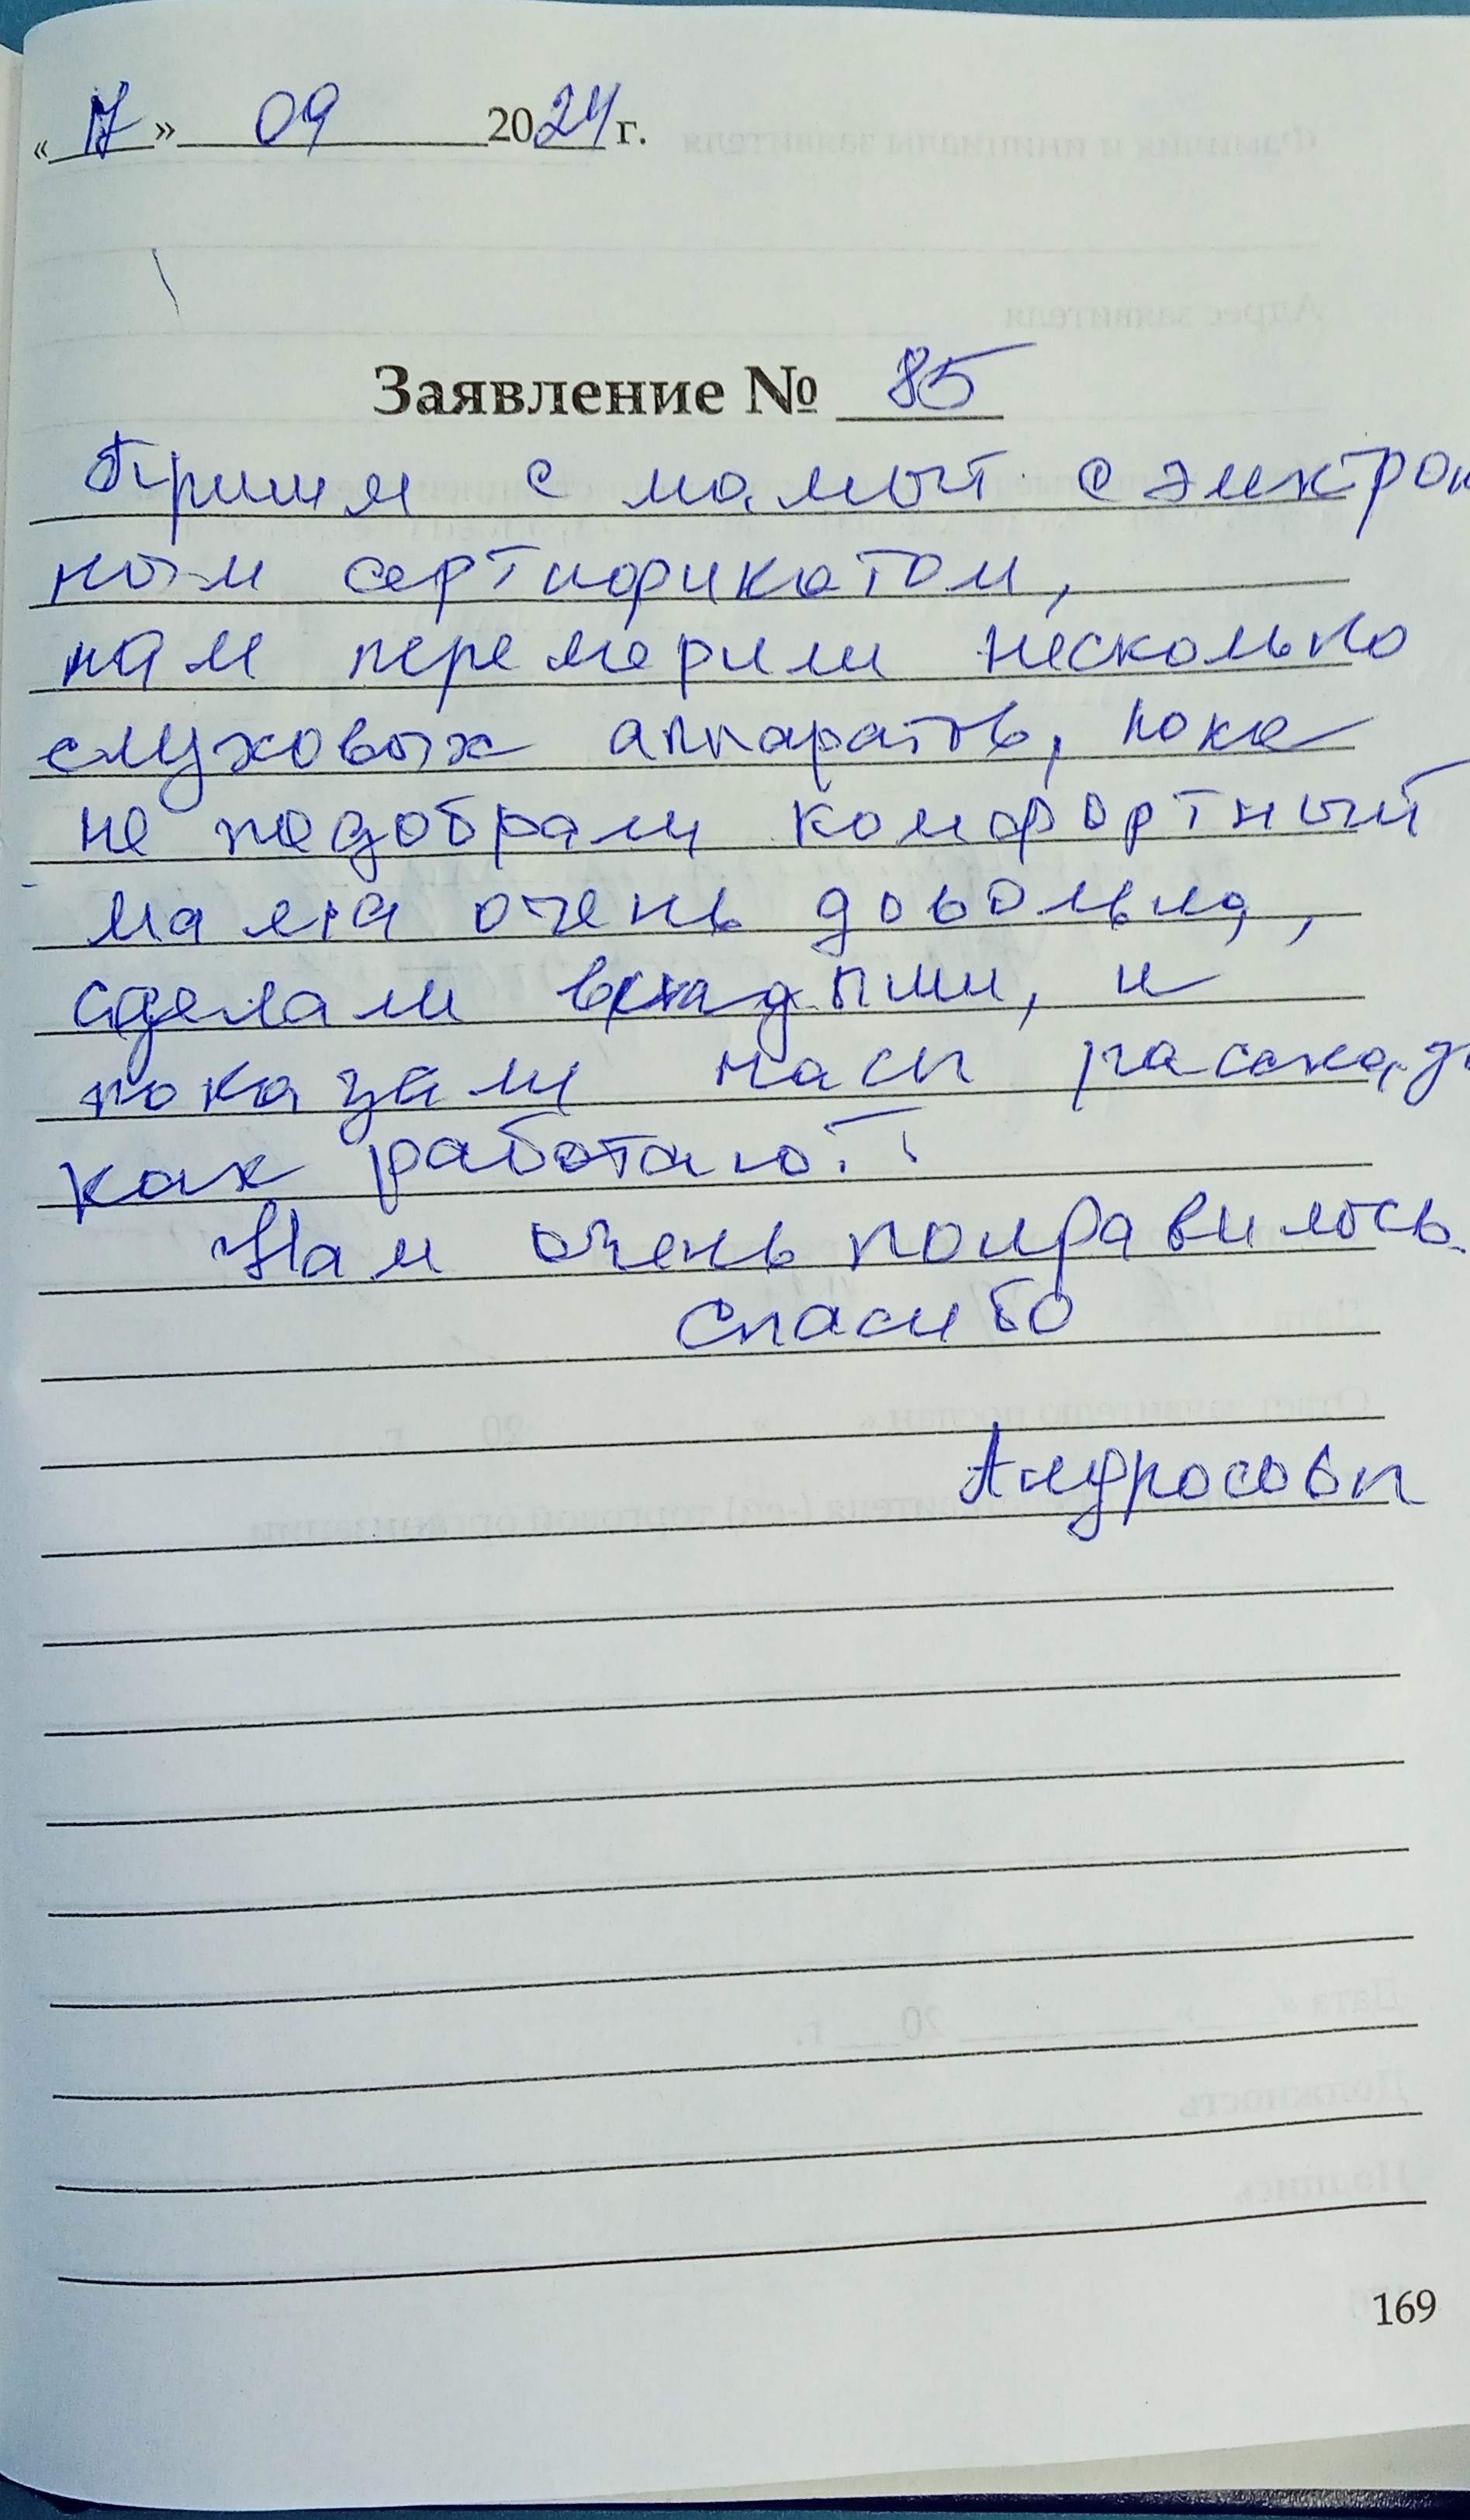 «17» 09 2024 г.
Заявление № 85
Пришли с мамой с электрон
ным сертификатом,
нам перемерили несколько
слуховых аппаратов, пока
не подобрали комфортный
мама очень довольна,
сделали вкладыши, и
показали
как работают.
Нам очень понравилось.
Спасибо
Андросовы
169